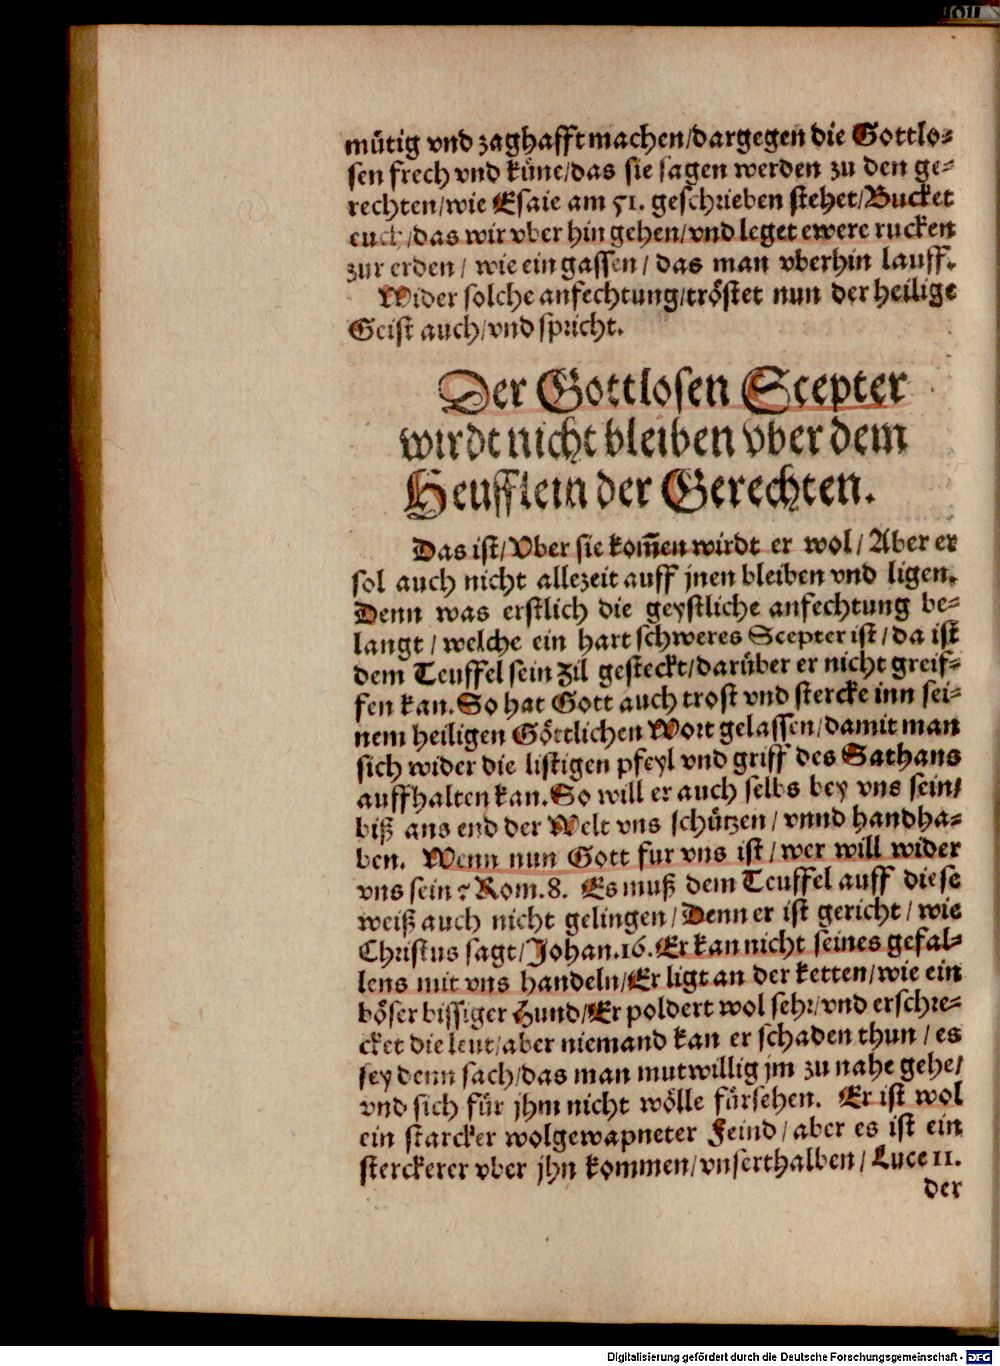 mütig vnd zaghafft machen/dargegen die Gottlo-
sen frech vnd küne/das sie sagen werden zu den ge-
rechten/wie Esaie am 51. geschrieben stehet/Bucket
euch/das wir vber hin gehen/vnd leget ewere rucken
zur erden/ wie ein gassen/ das man vberhin lauff.
Wider solche anfechtung/tröstet nun der heilige
Geist auch/vnd spricht.
Der Gottlosen Scepter
wirdt nicht bleiben vber dem
Heufflein der Gerechten.
Das ist/Vber sie kom̃en wirdt er wol/ Aber er
sol auch nicht allezeit auff jnen bleiben vnd ligen.
Denn was erstlich die geystliche anfechtung be-
langt/ welche ein hart schweres Scepter ist/da ist
dem Teuffel sein zil gesteckt/darüber er nicht greif-
fen kan. So hat Gott auch trost vnd stercke inn sei-
nem heiligen Göttlichen Wort gelassen/damit man
sich wider die listigen pfeyl vnd griff des Sathans
auffhalten kan. So will er auch selbs bey vns sein/
biß ans end der Welt vns schützen/ vnnd handha-
ben. Wenn nun Gott fur vns ist/wer will wider
vns sein? Rom.8. Es muß dem Teuffel auff diese
weiß auch nicht gelingen/Denn er ist gericht/ wie
Christus sagt/Johan.16. Er kan nicht seines gefal-
lens mit vns handeln/Er ligt an der ketten/wie ein
böser bissiger Hund/Er poldert wol sehr/vnd erschre-
cket die leut/aber niemand kan er schaden thun/ es
sey denn sach/das man mutwillig jm zu nahe gehe/
vnd sich für jhm nicht wölle fürsehen. Er ist wol
ein starcker wolgewapneter Feind/aber es ist ein
sterckerer vber jhn kommen/vnserthalben/Luce 11.
der
Digitalisierung gefördert durch die Deutsche Forschungsgemeinschaft - DFG